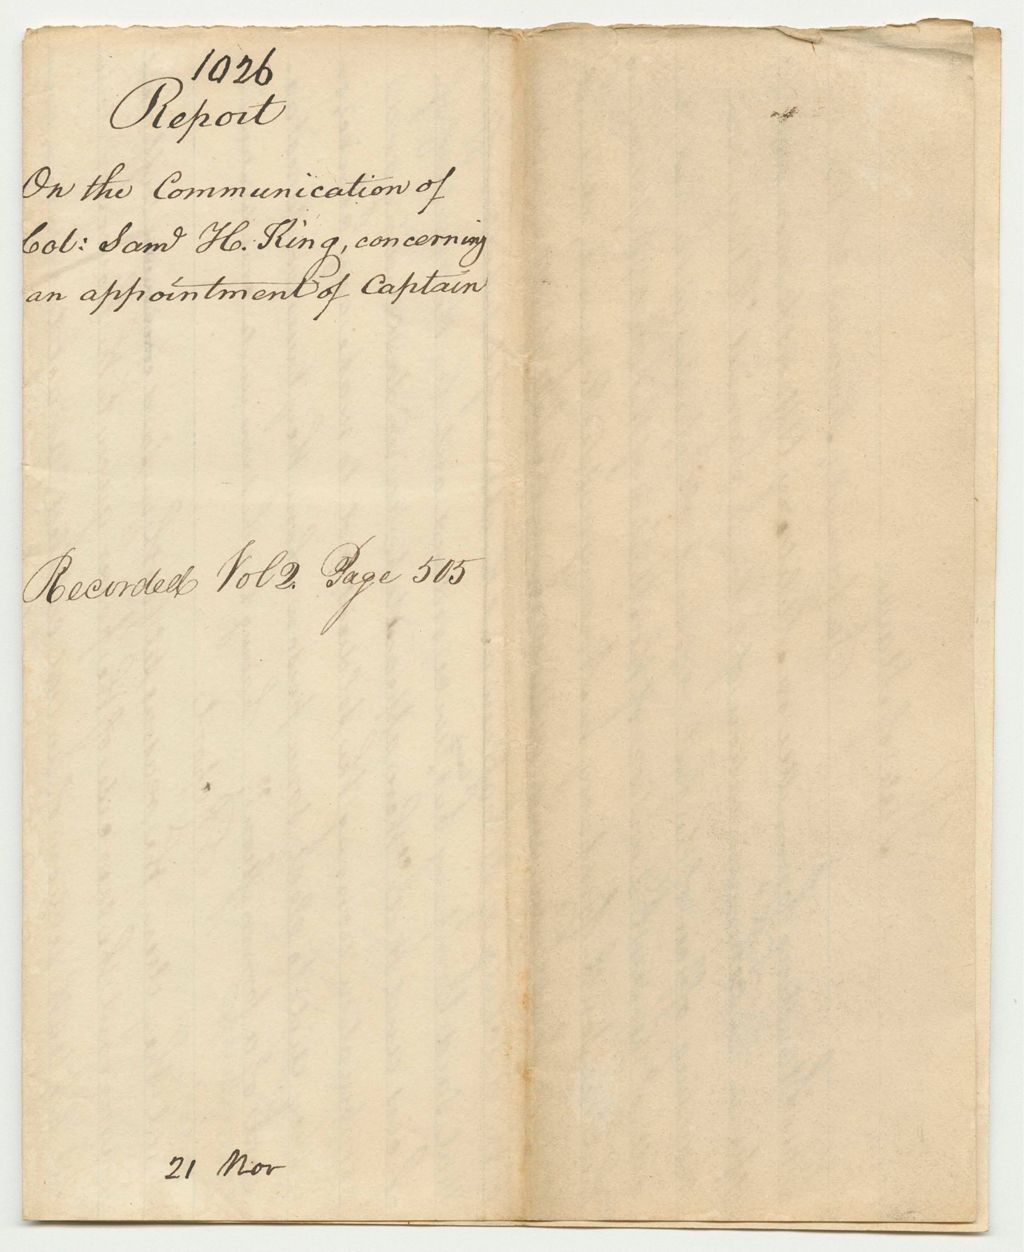 1026
Report
On the Communication of
Col: Saml H. King, concerning
an appointment of Captain
Recorded Vol 2. Page 505
21 Nov